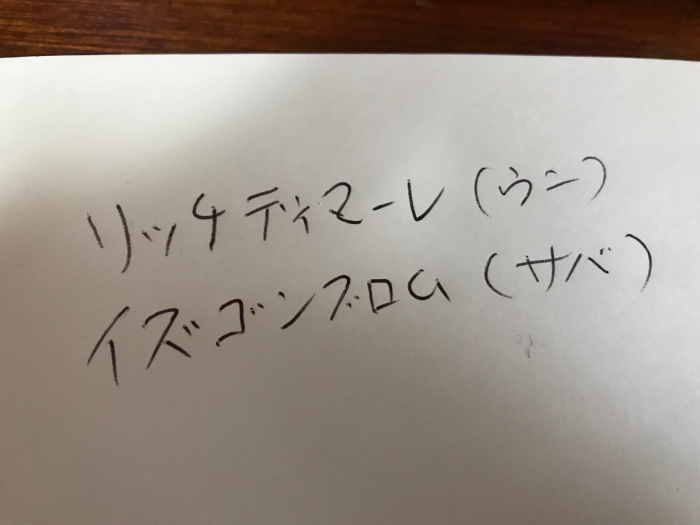 リッチディマーレ(ウニ)
イズゴンブロム(サバ)